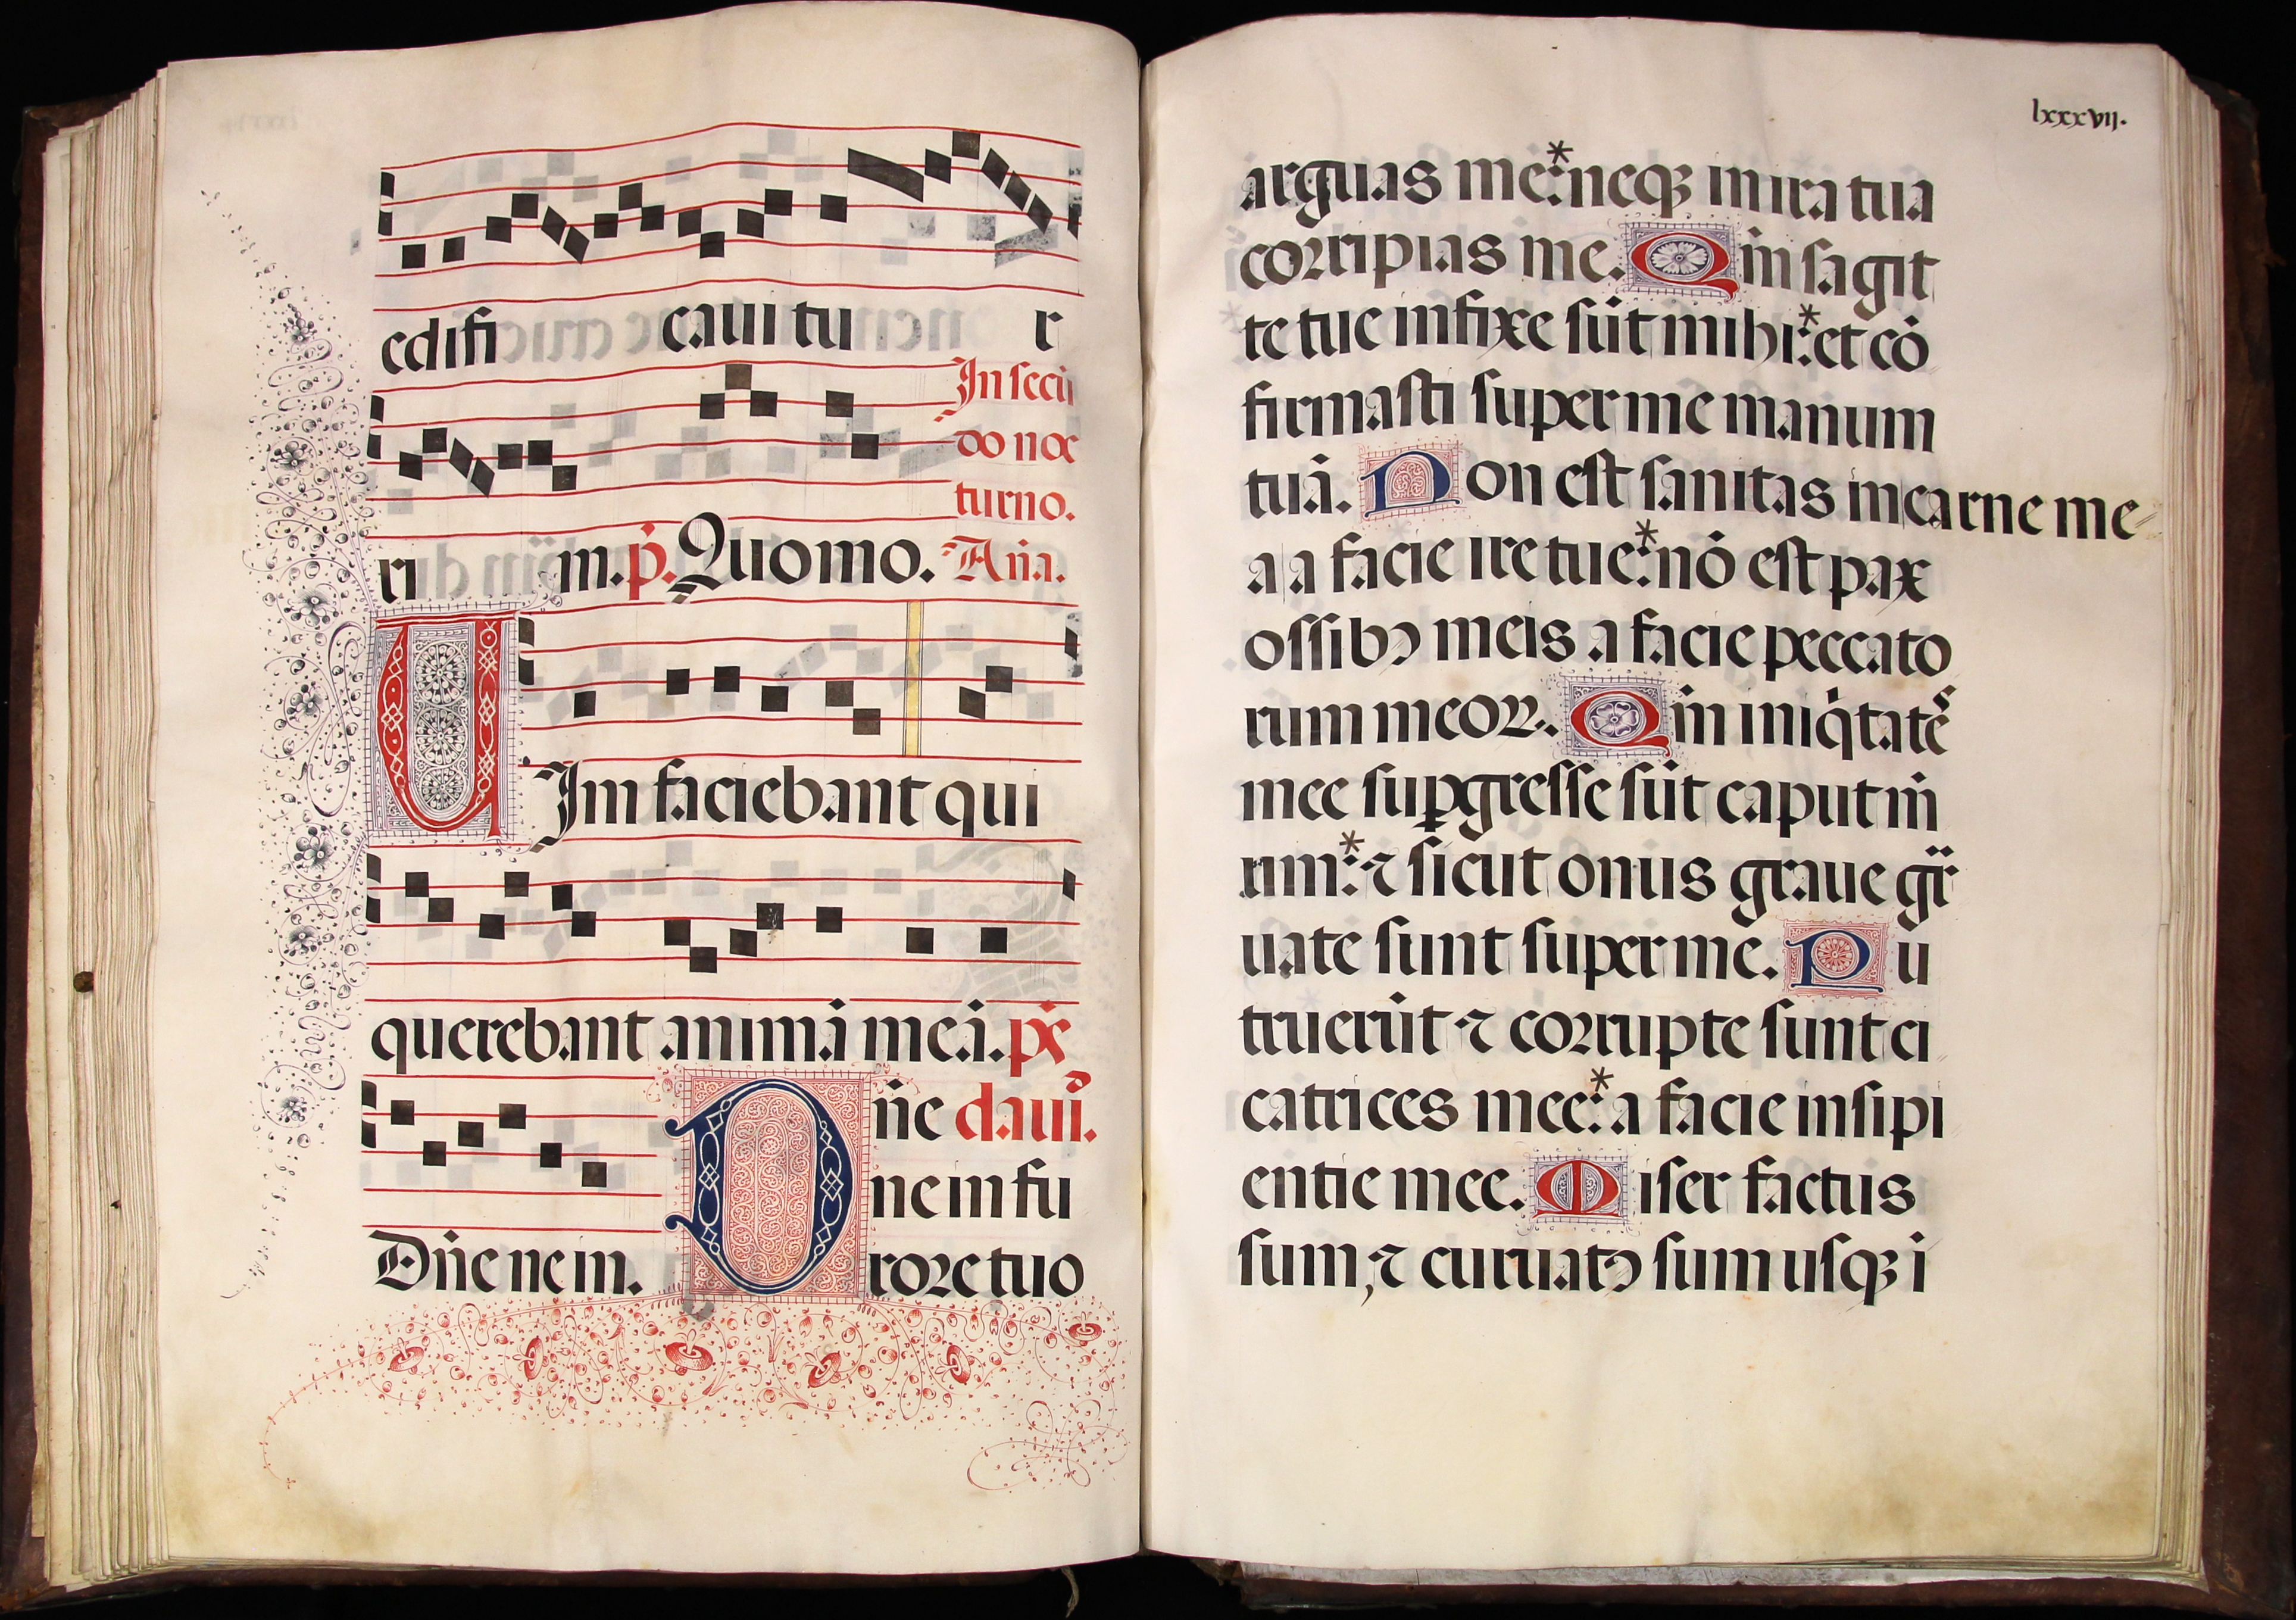 edifi cauitu r
In secū
do noc
turno.
ri m. p̄. Quomo. Aña.
UIm faciebant qui
querebant animā meā. ps̄
Dñe dauī.
ne in fu
Dñe ne in. rore tuo
lxxxvij.
arguas me:* neqꝫ in ira tua
corripias me. Qm̄ sagit
te tue infixe sūt mihi:* et cō
firmasti super me manum
tuā. Non est sanitas in carne me
a a facie ire tue:* nō est pax
ossibꝰ meis a facie peccato
rum meoꝝ. Qm̄ iniq̇tatē
mee suꝑgresse sūt caput m̄
um:* ⁊ sicut onus graue gr̄
uate sunt super me. Pu
truerūt ⁊ corrupte sunt ci
catrices mee:* a facie insipi
entie mee. Miser factus
sum, ⁊ curuatꝰ sum usqꝫ ī